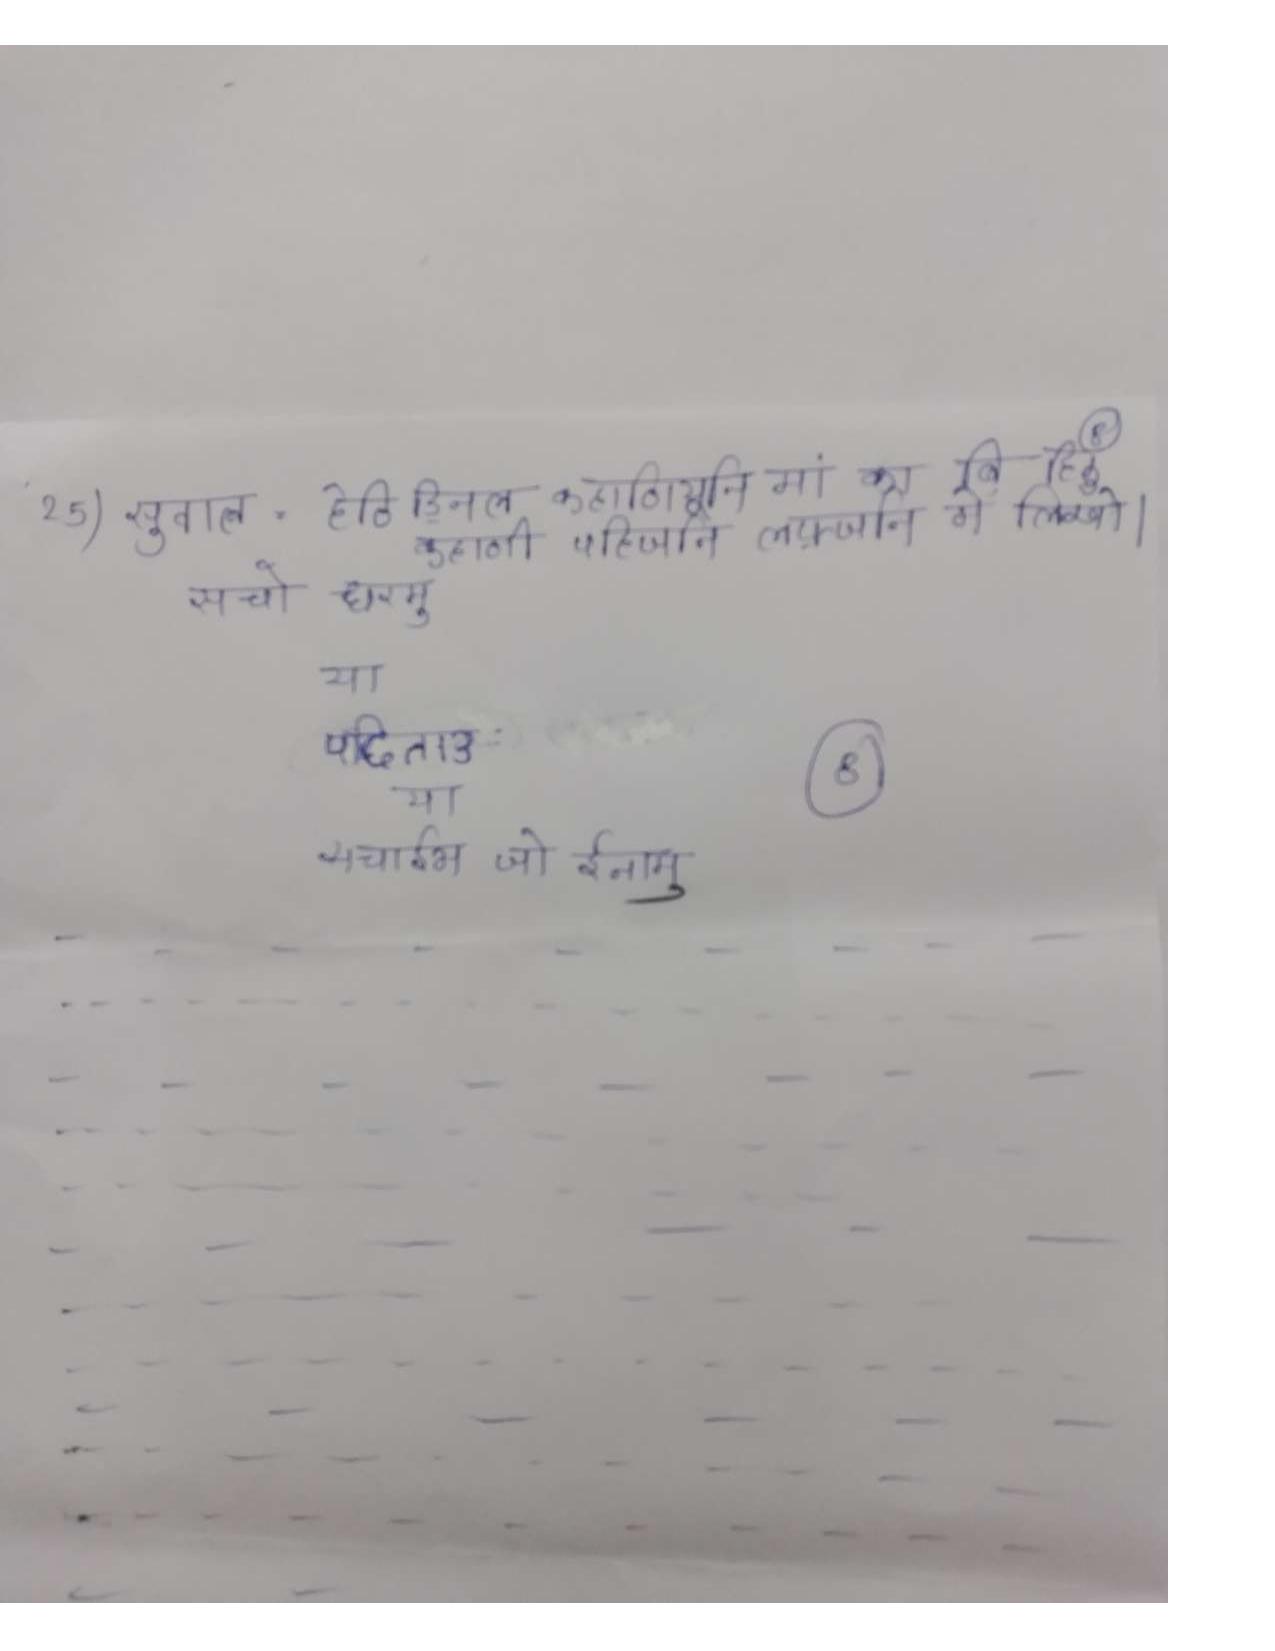 8
25) सुवाल - हेठि ड़िनल कहाणियूनि मां का बि हिकु
कहाणी पहिंजनि लफ़्जनि में लिखो।
सचो धरमु
या
पछिताउ :
8
या
सचाईअ जो ईनामु